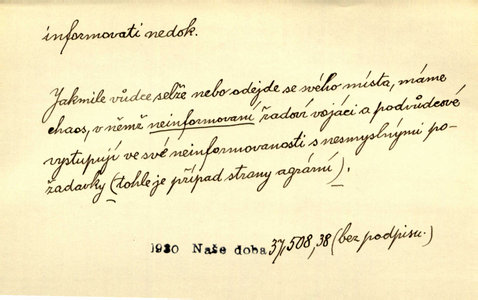 informovati nedok.
Jakmile vůdce selže nebo odejde se svého místa, máme
chaos, v němž neinformovaní řadoví vojáci a podvůdcové
vystupují ve své neinformovanosti s nesmyslnými po-
žadavky (tohle je případ strany agrární).
1930 Naše doba 37,508,38 (bez podpisu.)